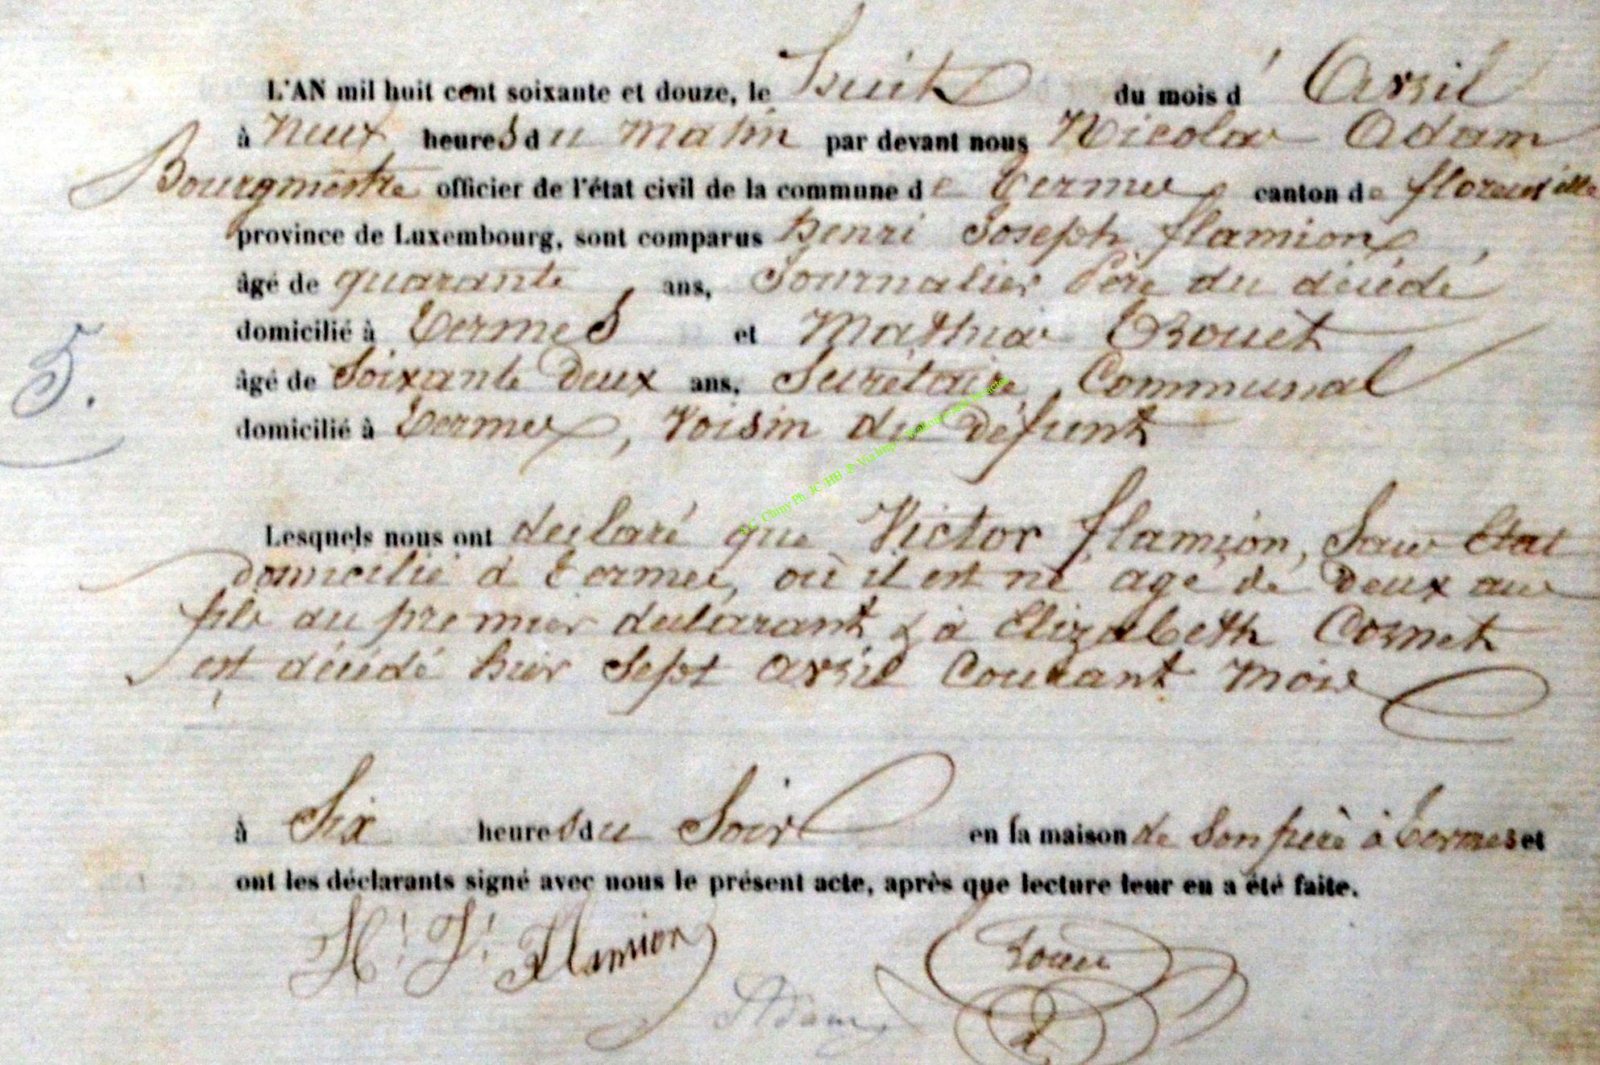 L'AN mil huit cent soixante et douze, le huit du mois d'Avril
à neuf heures du matin par devant nous Nicolas Adam
Bourgmestre officier de l'état civil de la commune de Termes canton de florenville
province de Luxembourg, sont comparus Henri Joseph flamion,
âgé de quarante ans, Journalier Père du décédé
domicilié à Termes et Mathias
5.
âgé de Soixante Deux ans, Secrétaire Communal
domicilié à Termes, Voisin du défunt
Lesquels nous ont déclaré que Victor flamion, Sans Etat
domicilié à Termes, où il est né agé de Deux ans
fils du premier déclarant & à Elizabeth Cornet
est décédé hier Sept avril Courant mois
à Six heures du Soir en la maison de Son père à Termes et
ont les déclarants signé avec nous le présent acte, après que lecture leur en a été faite.
H! J! Flamion
Adam